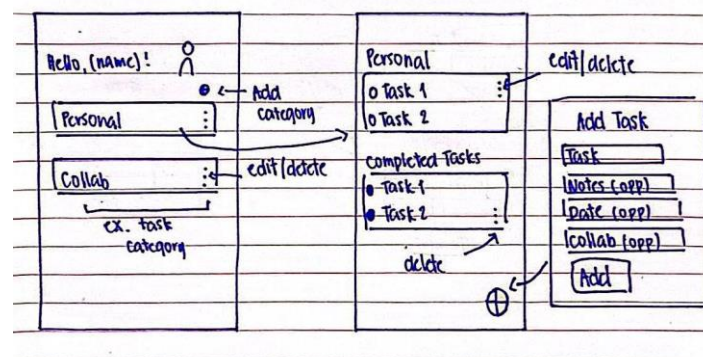 Hello, (name)!
Add
category
Personal
Collab
edit/delete
ex. task
category
Personal
edit/delete
Task 1
Task 2
Completed Tasks
Task 1
Task 2
delete
Add Task
Task
Notes (opp)
Date (opp)
Collab (opp)
Add